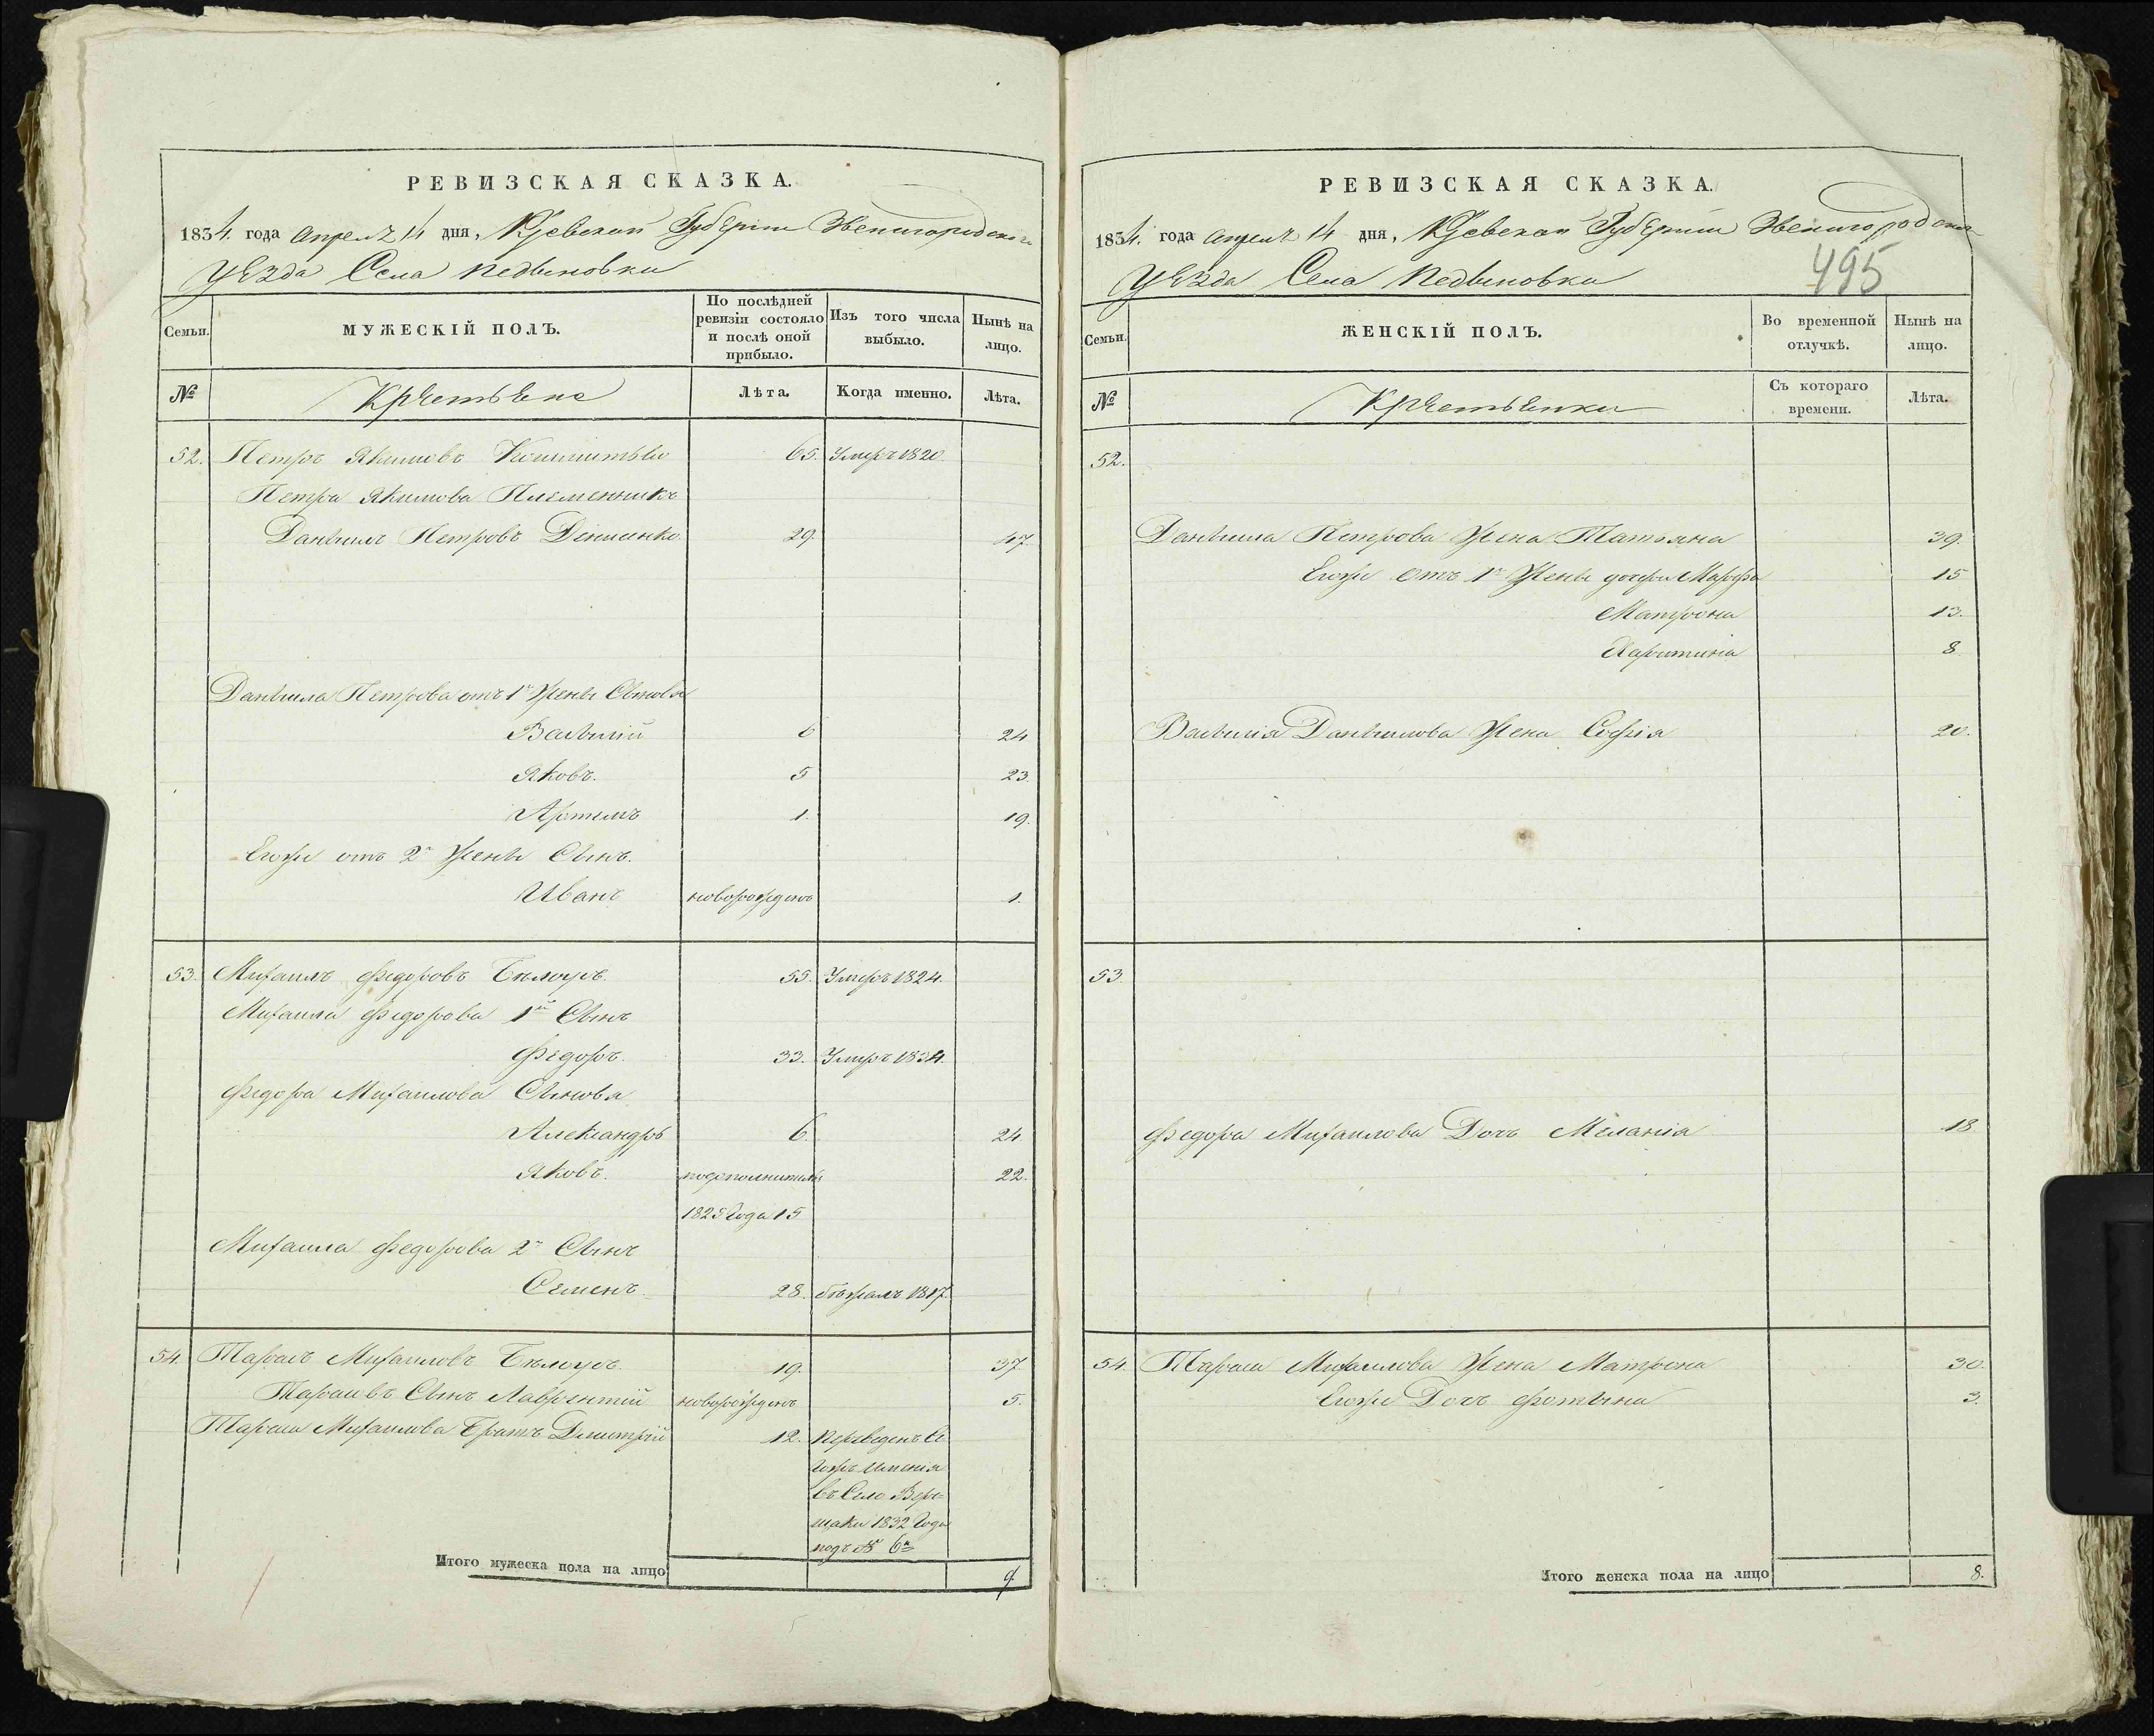 РЕВИЗСКАЯ СКАЗКА.
1834. года Апреля 14 дня, Кіевской Губерніи Звенигородского
Уѣзда Села Педыновки
Семьи.
МУЖЕСКІЙ ПОЛЪ.
По послѣдней ревизіи состояло и послѣ оной прибыло.
Изъ того числа выбыло.
Нынѣ на лицо.
№
Крестьяне
Лѣта.
Когда именно.
Лѣта.
52. Петръ Якимовъ 65. Умеръ 1820.
Петра Якимова Племенникъ
Даніилъ Петровъ 29. 47.
Даніила Петрова отъ 1й Жены Сыновья
Василій 6 24
Яковъ. 5 23.
Артемъ 1. 19.
Егоже отъ 2й Жены Сынъ.
Иванъ новорожденъ 1.
53. Михаилъ Федоровъ Бѣлоусъ. 55. Умеръ 1824.
Михаила Федорова 1й Сынъ
Федоръ. 33. Умеръ 1834.
Федора Михаилова Сыновья
Александръ 6. 24.
Яковъ. 22.
1825 Года 15
Михаила Федорова 2й Сынъ
Семенъ. 28. бѣжалъ 1817.
54. Тарасъ Михаиловъ Бѣлоусъ. 19. 37.
Тарасовъ Сынъ Лаврентій новорожденъ 5.
Тараса Михаилова Братъ Дмитрій 12. Переведенъ Е
гожъ Имѣнія
въ Село Вер=
щаки 1832 Года
подъ № 6м
Итого мужеска пола на лицо 9.
РЕВИЗСКАЯ СКАЗКА.
1834. года Апреля 14 дня, Кіевской Губерніи Звенигородског
Уѣзда Села Педыновки
495
Семьи.
ЖЕНСКІЙ ПОЛЪ.
Во временной отлучкѣ.
Нынѣ на лицо.
№
Крестьянки
Съ котораго времени.
Лѣта.
52.
Даніила Петрова Жена Татьяна 39.
Егоже отъ 1й Жены дочери Марфа 15
Матрона 13.
Харитинія 8
Василія Даніилова Жена Софія 20.
53.
Федора Михаилова Дочь Меланія 18
54. Тараса Михаилова Жена Матрона 30.
Егоже Дочь Фотына 3.
Итого женска пола на лицо 8.